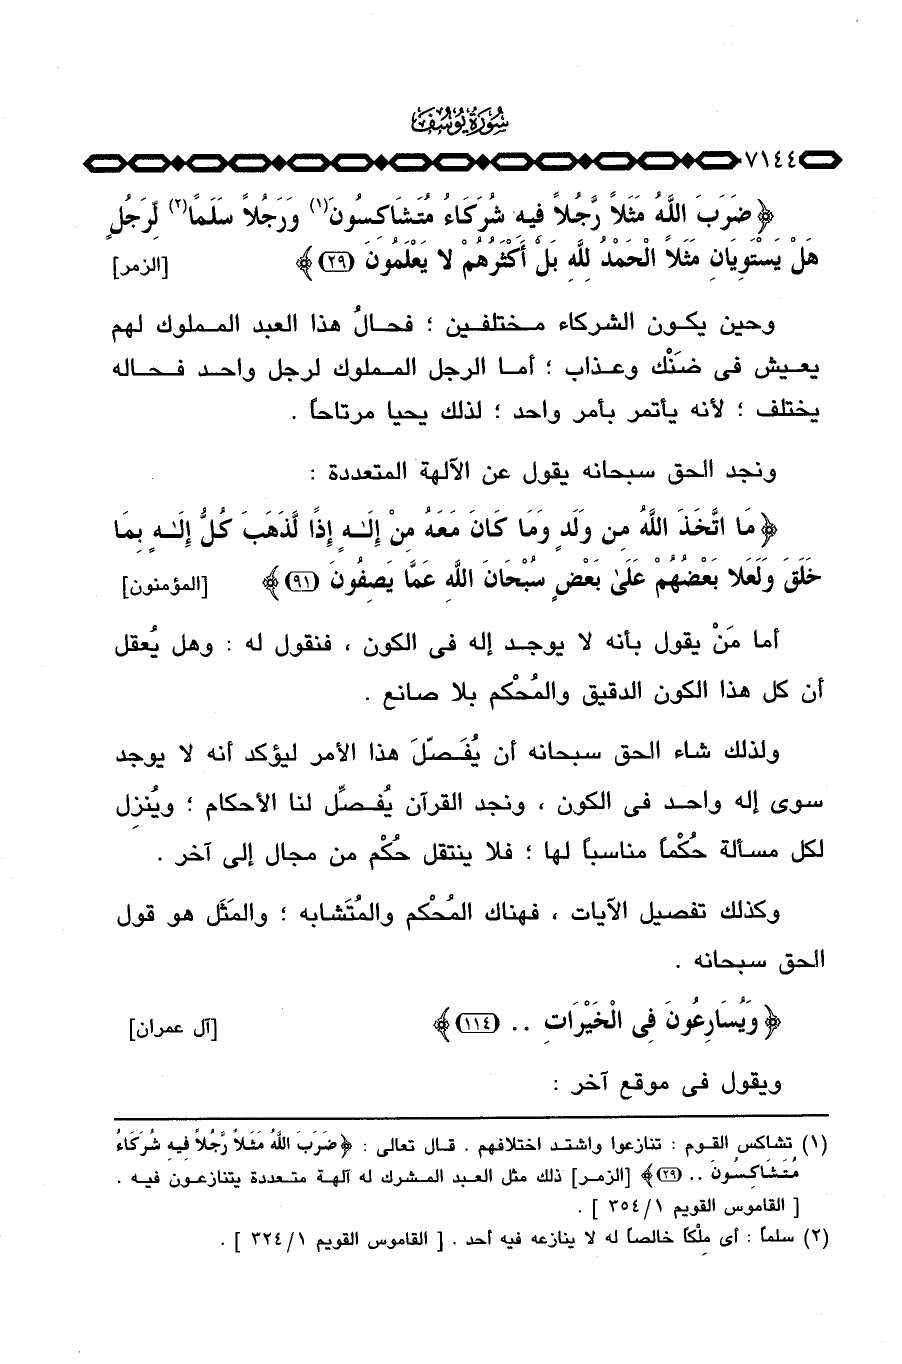 سُورَةُ يُوسُفَ
٧١٤٤
﴿ ضَرَبَ اللَّهُ مَثَلاً رَّجُلاً فِيهِ شُرَكَاءُ مُتَشَاكِسُونَ(١) وَرَجُلاً سَلَماً(٢) لِّرَجُلٍ
هَلْ يَسْتَوِيَانِ مَثَلاً الْحَمْدُ لِلَّهِ بَلْ أَكْثَرُهُمْ لا يَعْلَمُونَ (٢٩) ﴾ [الزمر]
وحين يكون الشركاء مختلفين ؛ فحالُ هذا العبد المملوك لهم
يعيش فى ضَنْك وعذاب ؛ أما الرجل المملوك لرجل واحد فحاله
يختلف ؛ لأنه يأتمر بأمر واحد ؛ لذلك يحيا مرتاحاً .
ونجد الحق سبحانه يقول عن الآلهة المتعددة :
﴿ مَا اتَّخَذَ اللَّهُ مِن وَلَدٍ وَمَا كَانَ مَعَهُ مِنْ إِلَـٰهٍ إِذًا لَّذَهَبَ كُلُّ إِلَـٰهٍ بِمَا
خَلَقَ وَلَعَلا بَعْضُهُمْ عَلَىٰ بَعْضٍ سُبْحَانَ اللَّهِ عَمَّا يَصِفُونَ (٩١) ﴾ [المؤمنون]
أما مَنْ يقول بأنه لا يوجد إله فى الكون ، فنقول له : وهل يُعقل
أن كل هذا الكون الدقيق والمُحْكم بلا صانع .
ولذلك شاء الحق سبحانه أن يُفَصّلَ هذا الأمر ليؤكد أنه لا يوجد
سوى إله واحد فى الكون ، ونجد القرآن يُفصِّل لنا الأحكام ؛ ويُنزِل
لكل مسألة حُكْماً مناسباً لها ؛ فلا ينتقل حُكْم من مجال إلى آخر .
وكذلك تفصيل الآيات ، فهناك المُحْكم والمُتَشابه ؛ والمَثَل هو قول
الحق سبحانه .
﴿ وَيُسَارِعُونَ فِى الْخَيْرَاتِ .. (١١٤) ﴾ [آل عمران]
ويقول فى موقع آخر :
(١) تشاكس القوم : تنازعوا واشتد اختلافهم . قال تعالى : ﴿ ضَرَبَ اللَّهُ مَثَلاً رَّجُلاً فِيهِ شُرَكَاءُ
مُتَشَاكِسُونَ .. (٢٩) ﴾ [الزمر] ذلك مثل العبد المشرك له آلهة متعددة يتنازعون فيه .
[ القاموس القويم ٣٥٤/١ ] .
(٢) سلماً : أى مِلْكاً خالصاً له لا ينازعه فيه أحد . [ القاموس القويم ٣٢٤/١ ] .